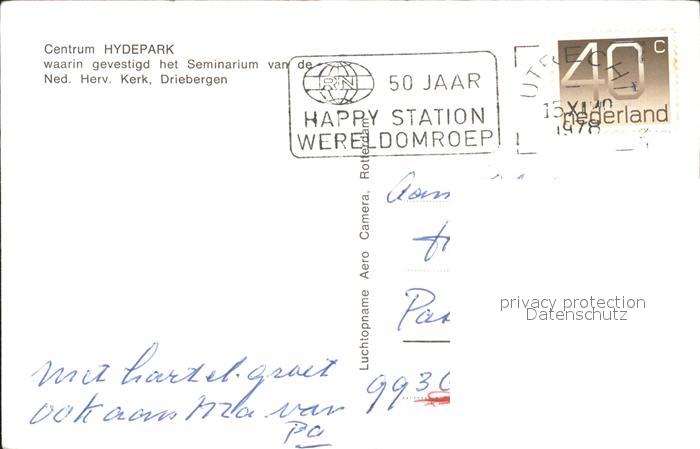 Centrum HYDEPARK
waarin gevestigd het Seminarium van de
Ned. Herv. Kerk, Driebergen
RN
50 JAAR
HAPPY STATION
WERELDOMROEP
UTRECHT
15 XI
1978
40 c
nederland
Luchtopname Aero Camera, Rotterdam
Aan
privacy protection
Datenschutz
993
Met hartel. groet
ook aan Ma van
Pa